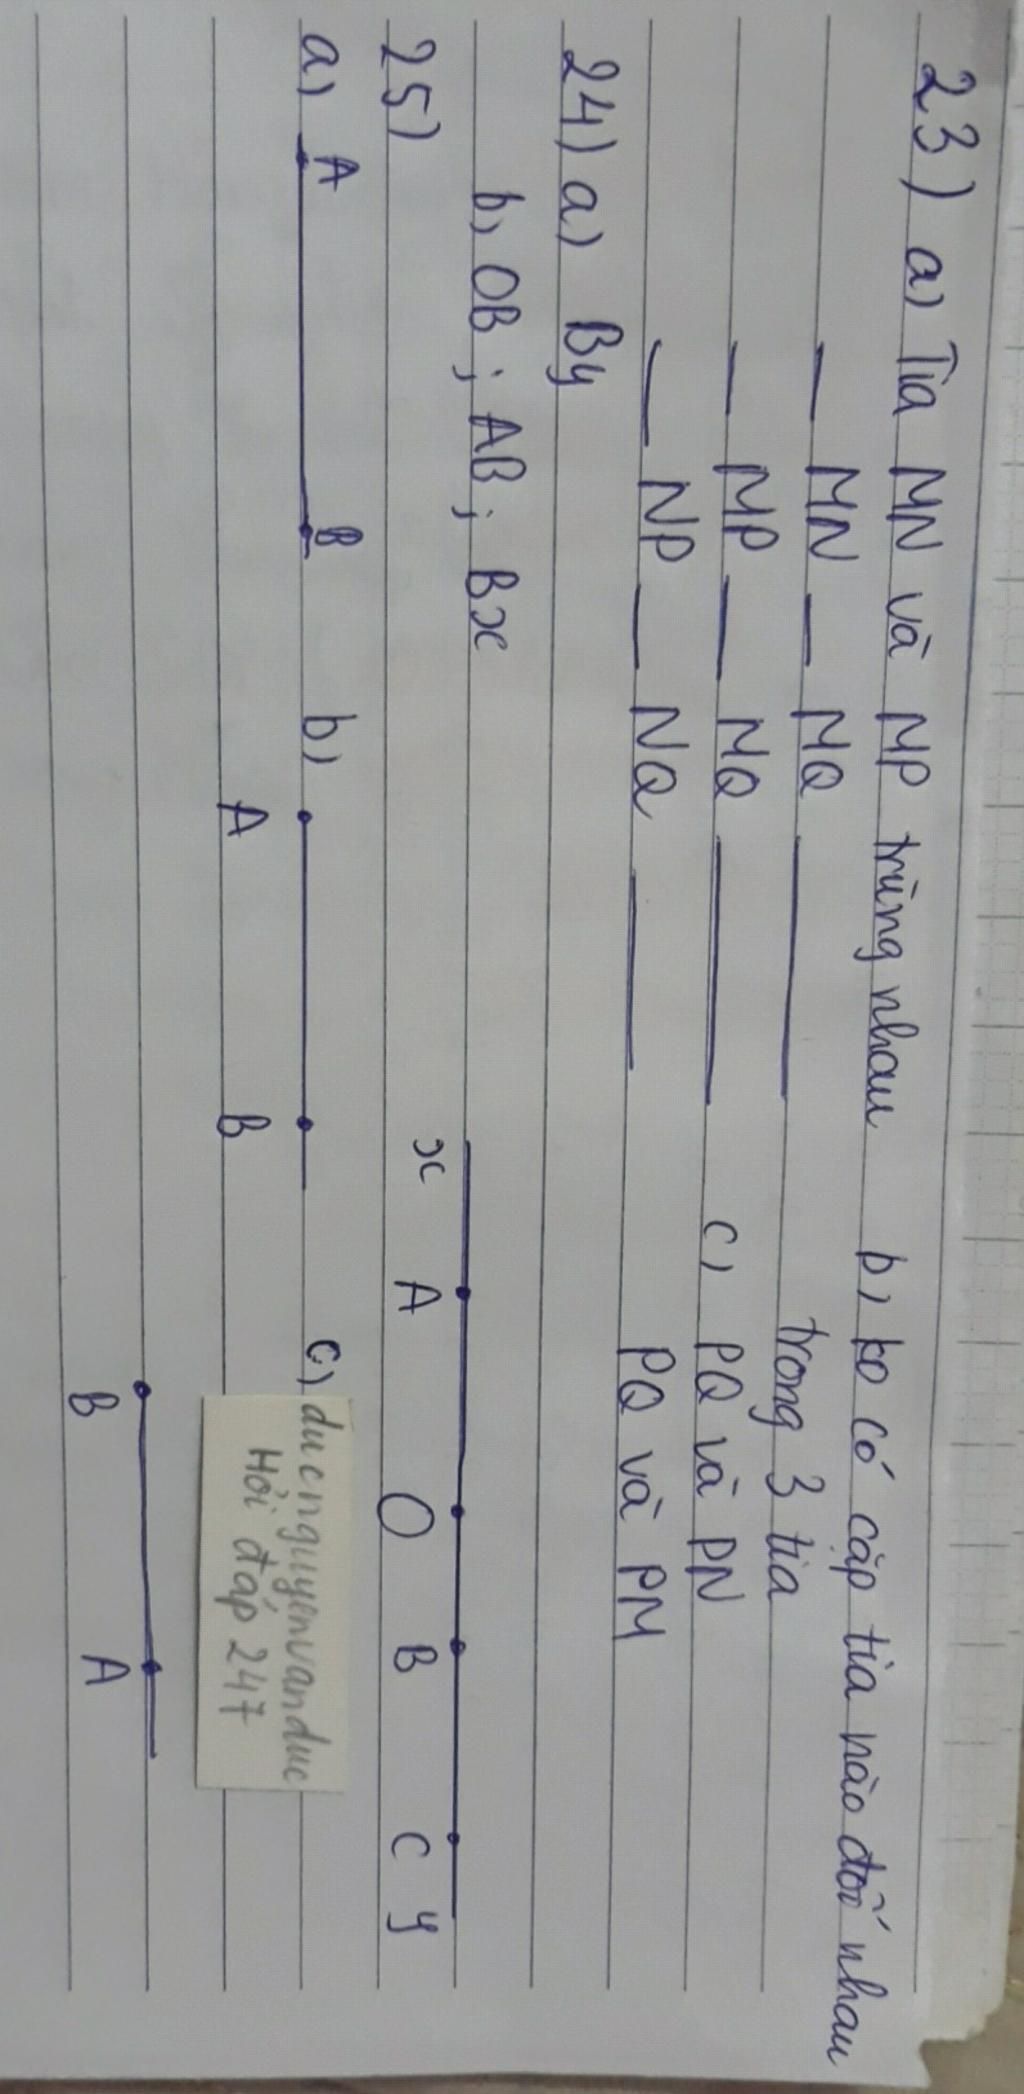 23) a) Tia MN và MP trùng nhau b) ko có cặp tia nào đối nhau
— MN — MQ —— trong 3 tia
— MP — MQ —— c) PQ và PN
— NP — NQ —— PQ và PM
24) a) By
b) OB ; AB ; Bx
x A O B C y
25)
a) A B b) A B c)
ducnguyenvanduc
Hỏi đáp 247
B A